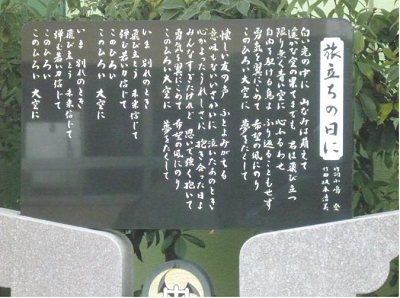 旅立ちの日に
作詞 小嶋 登
作曲 坂本浩美
白い光の中に 山なみは萌えて
遥かな空の果てまでも 君は飛び立つ
限りなく青い空に 心ふるわせ
自由を駆ける鳥よ ふり返ることもせず
勇気を翼にこめて 希望の風にのり
このひろい 大空に 夢をたくして
懐しい友の声 ふとよみがえる
意味もないいさかいに 泣いたあのとき
心かよったうれしさに 抱き合った日よ
みんなすぎたけれど 思いで強く抱いて
勇気を翼にこめて 希望の風にのり
このひろい 大空に 夢をたくして
いま 別れのとき
飛び立とう 未来信じて
弾む若い力信じて
このひろい
このひろい 大空に
いま 別れのとき
飛び立とう 未来信じて
弾む若い力信じて
このひろい
このひろい 大空に